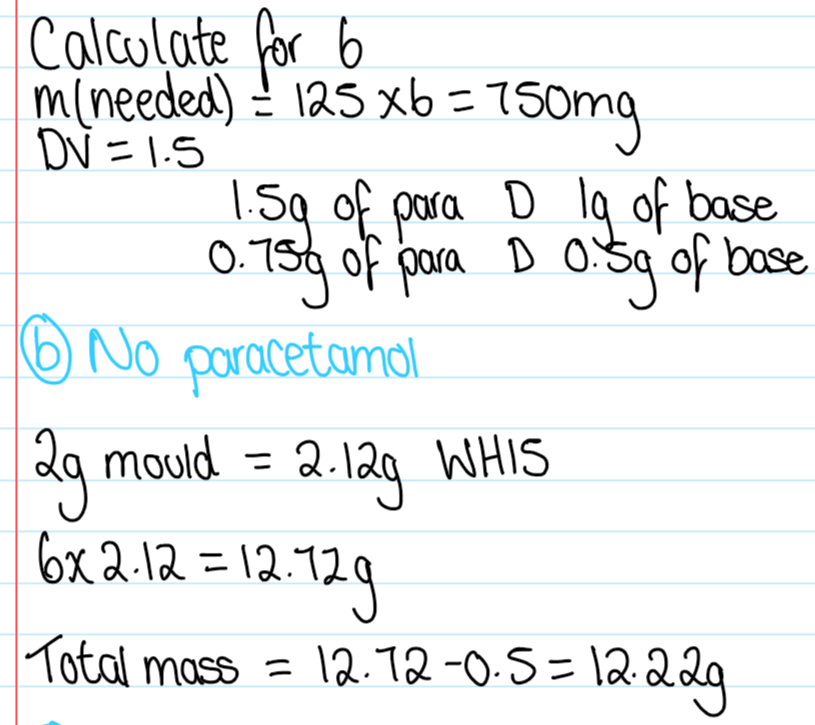 Calculate for 6
m(needed) = 125 x6 = 750mg
DV = 1.5
1.5g of para D 1g of base
0.75g of para D 0.5g of base
(b) No paracetamol
2g mould = 2.12g WHIS
6x 2.12 = 12.72g
Total mass = 12.72 - 0.5 = 12.22g